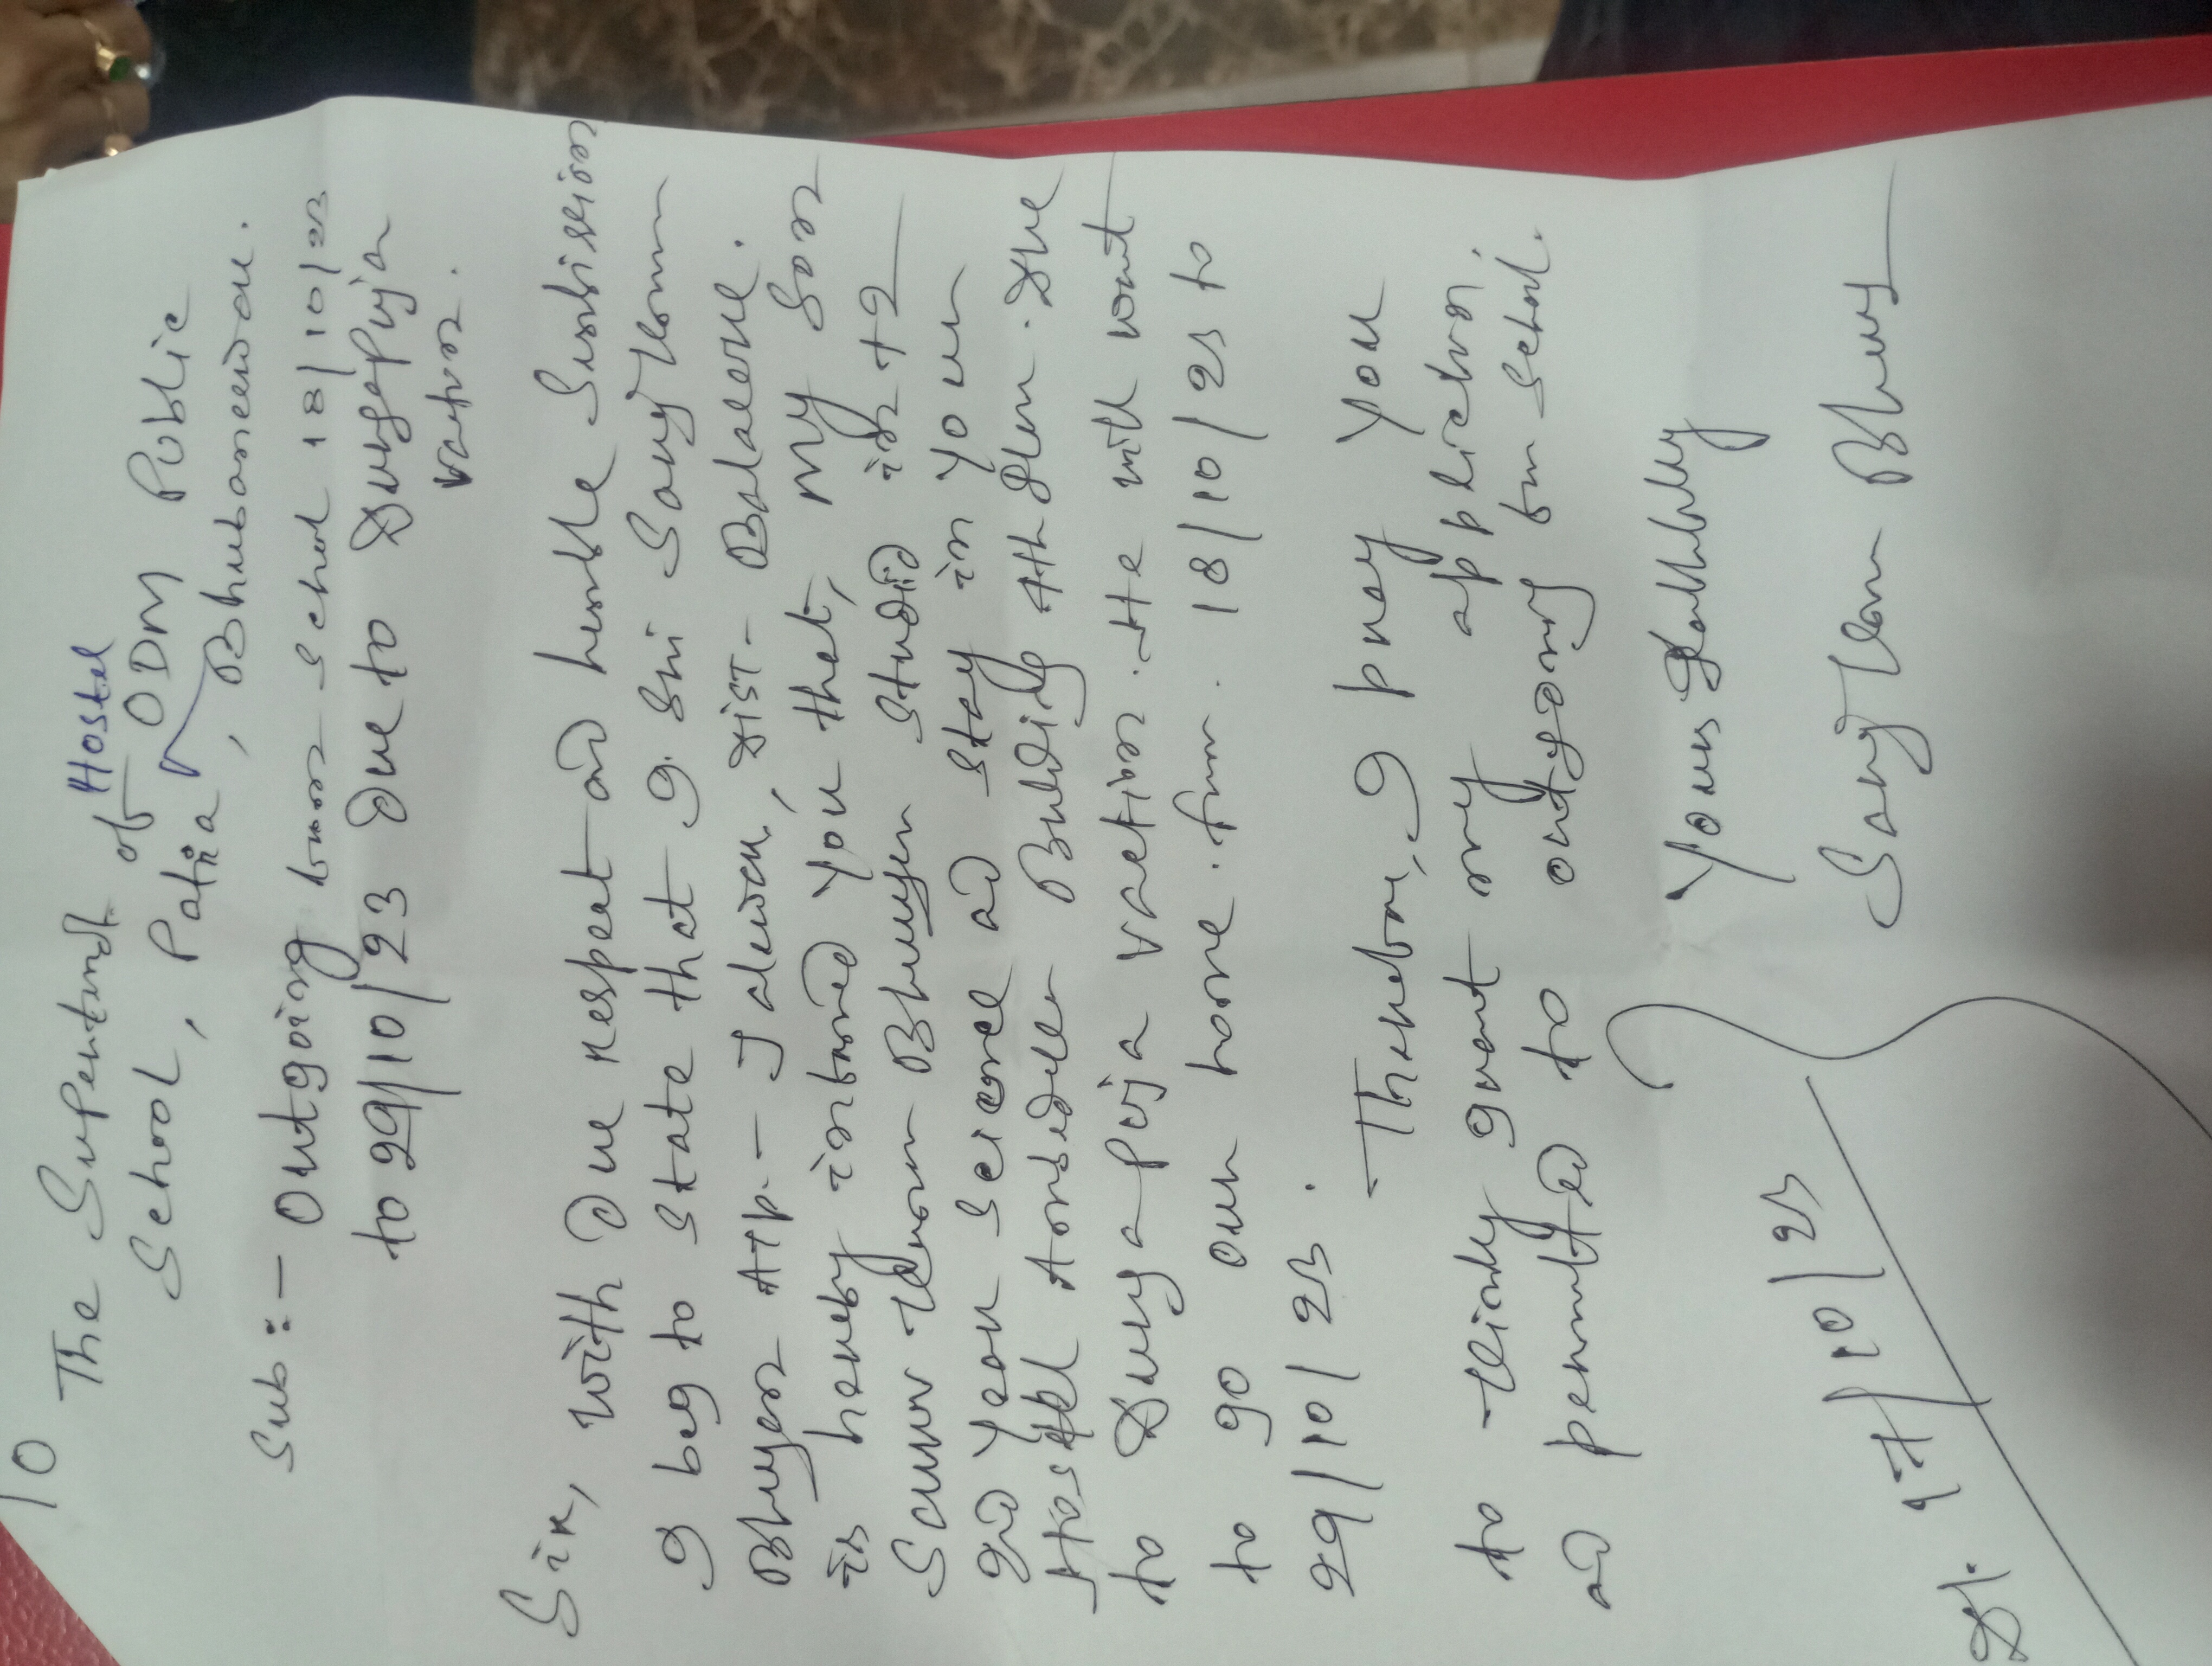 To
The Supentendt of Hostel
School, ODM Public
Patia, Bhubaneswar.
Sub:- Outgoing from School 18/10/23
to 29/10/23 due to Durga Puja
vaction.
Sir, with due respect and humble Submission
I beg to state that I Sri
Bhuyan At/p.- Jaleswar, Dist- Balasore.
is hereby informed you that, my son
Bhuyan studid in +2
2nd year science and stay in your
Hostel Building 4th floor. Due
to Durga Puja vaction. He will want
to go our home. from 18/10/23 to
29/10/23.
Therefore, I pray you
to kindly grant my appliction.
and permitted to outgoing from School.
Yours faithfully
Dt. 17/10/23